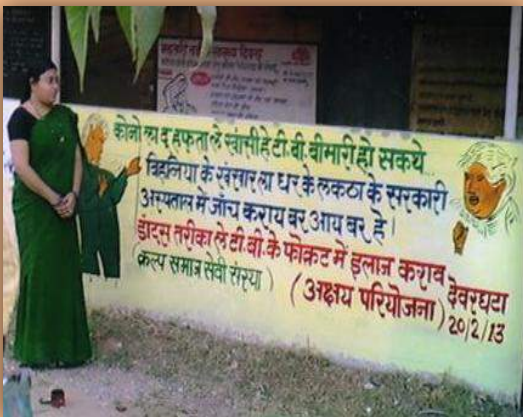 कोनो ला दू हफ्ता ले खांसी हे टी.बी. बीमारी हो सकथे
बिहनिया के खंखार ला धर के लकठा के सरकारी
अस्पताल में जाँच कराय बर आय बर हे।
डाट्स तरीका ले टी.बी. के फोकट में इलाज कराव
(कल्प समाज सेवी संस्था)
(अक्षय परियोजना)
देवरघटा
20/2/13